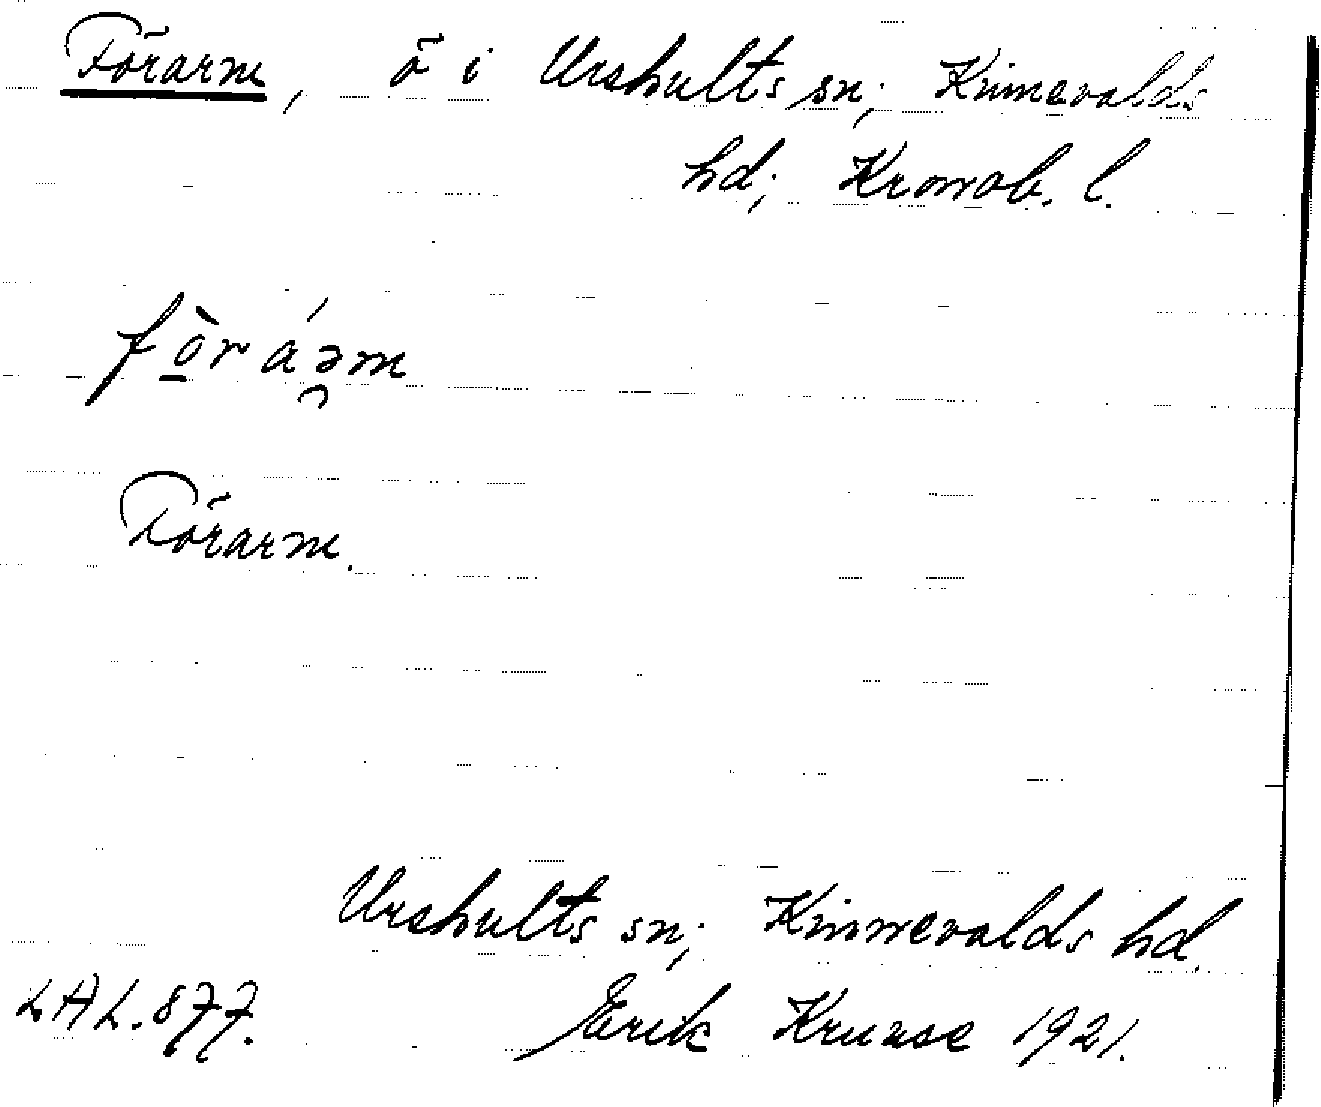 Förarm, ö i Urshults sn; Kinnevalds
hd; Kronob. l.
fo̱̊̀ráə̯m
Förarm.
Urshults sn; Kinnevalds hd.
LAL. 877. Erik Kruuse 1921.